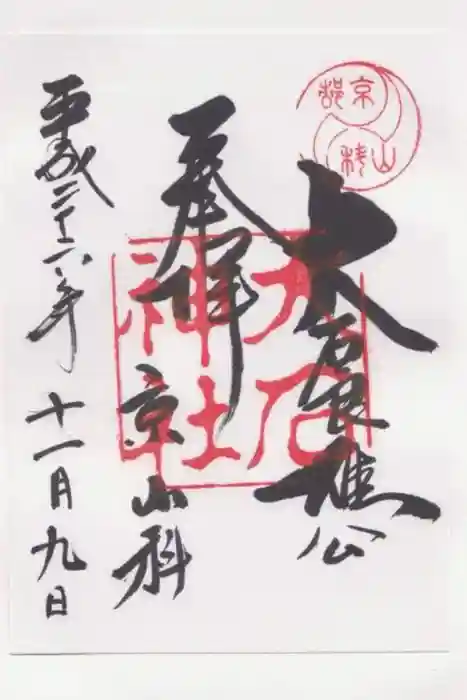 大石良雄公
奉拝
京山科
平成二十六年十一月九日
大石
神社
京
山科